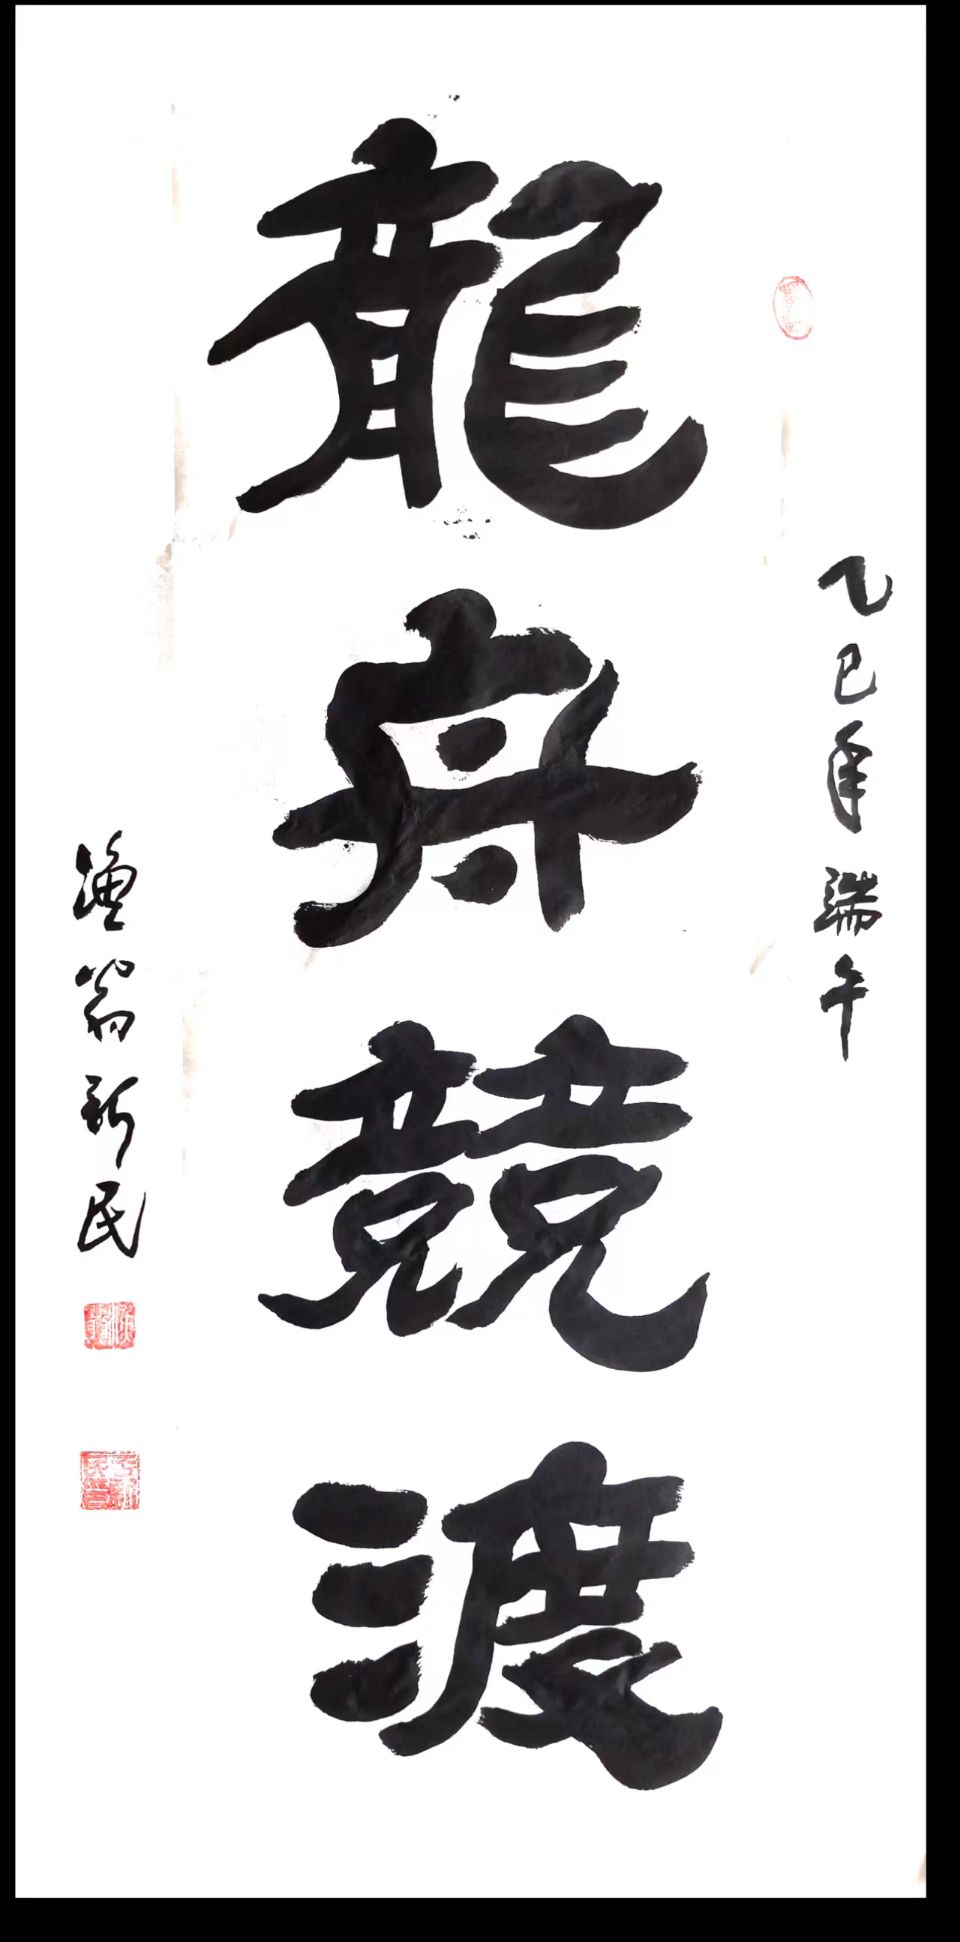 乙巳年端午
龍舟競渡
漁翁新民